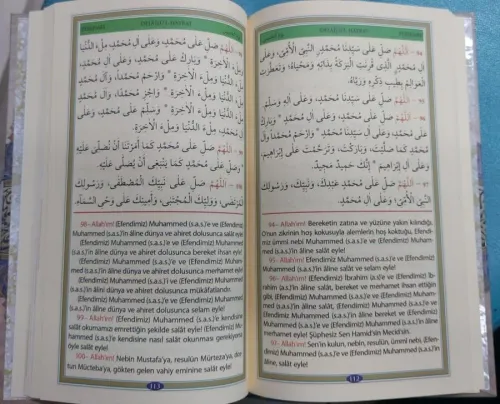 ٩٤ - اَللّٰهُمَّ صَلِّ عَلَى سَيِّدِنَا مُحَمَّدٍ النَّبِيِّ الْأُمِّيِّ، وَعَلَى
آلِ مُحَمَّدٍ الَّذِي قُرِنَتِ الْبَرَكَةُ بِذَاتِهِ وَمُحَيَّاهُ، وَتَعَطَّرَتِ
الْعَوَالِمُ بِطِيبِ ذِكْرِهِ وَرَيَّاهُ.
٩٥ - اَللّٰهُمَّ صَلِّ عَلَى سَيِّدِنَا مُحَمَّدٍ، وَعَلَى آلِهِ وَسَلِّمْ.
٩٦ - اَللّٰهُمَّ صَلِّ عَلَى مُحَمَّدٍ، وَعَلَى آلِ مُحَمَّدٍ * وَبَارِكْ
عَلَى مُحَمَّدٍ، وَعَلَى آلِ مُحَمَّدٍ * وَارْحَمْ مُحَمَّداً وَآلَ
مُحَمَّدٍ كَمَا صَلَّيْتَ، وَبَارَكْتَ، وَتَرَحَّمْتَ عَلَى إِبْرَاهِيمَ،
وَعَلَى آلِ إِبْرَاهِيمَ * إِنَّكَ حَمِيدٌ مَجِيدٌ.
٩٧ - اَللّٰهُمَّ صَلِّ عَلَى مُحَمَّدٍ عَبْدِكَ، وَنَبِيِّكَ، وَرَسُولِكَ
النَّبِيِّ الْأُمِّيِّ، وَعَلَى آلِ مُحَمَّدٍ.
94 – Allah'ım! Bereketin zatına ve yüzüne yakın kılındığı,
O'nun zikrinin hoş kokusuyla alemlerin hoş koktuğu, Efendi-
miz ümmi nebi Muhammed (s.a.s.)'e ve Muhammed (s.a.s.)'in
âline salât eyle!
95 – Allah'ım! (Efendimiz) Muhammed (s.a.s.)'e ve (Efen-
dimiz) Muhammed (s.a.s.)'in âline salât ve selam eyle!
96 – Allah'ım! (Efendimiz) İbrahim (a.s)'e ve (Efendimiz) İb-
rahim (a.s)'in âline salât, bereket ve merhamet ihsan ettiğin
gibi, (Efendimiz) Muhammed (s.a.s.)'e ve (Efendimiz) Mu-
hammed (s.a.s.)'in âline salât, (Efendimiz) Muhammed (s.a.s.)'e
ve (Efendimiz) Muhammed (s.a.s.)'in âline bereket ve (Efendimiz)
Muhammed (s.a.s.)'e ve (Efendimiz) Muhammed (s.a.s.)'in âline
merhamet eyle! Şüphesiz Sen Hamid'sin Mecid'sin.
97 – Allah'ım! Sen'in kulun, nebin, resulün, ümmi nebi, (Efen-
dimiz) Muhammed (s.a.s.)'e ve (Efendimiz) Muhammed (s.a.s.)'in
âline salât eyle!
112
٩٨ - اَللّٰهُمَّ صَلِّ عَلَى مُحَمَّدٍ، وَعَلَى آلِ مُحَمَّدٍ مِلْءَ الدُّنْيَا
وَمِلْءَ الْآخِرَةِ * وَبَارِكْ عَلَى مُحَمَّدٍ، وَعَلَى آلِ مُحَمَّدٍ مِلْءَ
الدُّنْيَا وَمِلْءَ الْآخِرَةِ * وَارْحَمْ مُحَمَّداً، وَآلَ مُحَمَّدٍ مِلْءَ
الدُّنْيَا وَمِلْءَ الْآخِرَةِ * وَاجْزِ مُحَمَّداً، وَآلَ مُحَمَّدٍ مِلْءَ
الدُّنْيَا وَمِلْءَ الْآخِرَةِ * وَسَلِّمْ عَلَى مُحَمَّدٍ، وَعَلَى
آلِ مُحَمَّدٍ مِلْءَ الدُّنْيَا وَمِلْءَ الْآخِرَةِ.
٩٩ - اَللّٰهُمَّ صَلِّ عَلَى مُحَمَّدٍ كَمَا أَمَرْتَنَا أَنْ نُصَلِّيَ عَلَيْهِ
* وَصَلِّ عَلَى مُحَمَّدٍ كَمَا يَنْبَغِي أَنْ يُصَلَّى عَلَيْهِ.
١٠٠ - اَللّٰهُمَّ صَلِّ عَلَى نَبِيِّكَ الْمُصْطَفَى، وَرَسُولِكَ
الْمُرْتَضَى، وَوَلِيِّكَ الْمُجْتَبَى، وَأَمِينِكَ عَلَى وَحْيِ السَّمَاءِ.
98– Allah'ım! (Efendimiz) Muhammed (s.a.s.)'e ve (Efendimiz)
Muhammed (s.a.s.)'in âline dünya ve ahiret dolusunca salât eyle!
(Efendimiz) Muhammed (s.a.s.)'e ve (Efendimiz) Muhammed
(s.a.s.)'in âline dünya ve ahiret dolusunca bereket ihsan eyle!
(Efendimiz) Muhammed (s.a.s.)'e ve (Efendimiz) Muhammed
(s.a.s.)'in âline dünya ve ahiret dolusunca merhamet eyle!
(Efendimiz) Muhammed (s.a.s.)'i ve (Efendimiz) Muhammed
(s.a.s.)'in âlini dünya ve ahiret dolusunca mükâfatlandır.
(Efendimiz) Muhammed (s.a.s.)'e ve (Efendimiz) Muhammed
(s.a.s.)'in âline dünya ve ahiret dolusunca selam eyle!
99 – Allah'ım! (Efendimiz) Muhammed (s.a.s.)'e kendisine
salât okumamızı emrettiğin şekilde salât eyle! (Efendimiz) Mu-
hammed (s.a.s.)'e kendisine nasıl salât okunması gerekiyorsa
öyle salât eyle!
100– Allah'ım! Nebin Mustafa'ya, resulün Mürteza'ya, dos-
tun Mücteba'ya, gökten gelen vahiy eminine salât eyle!
113